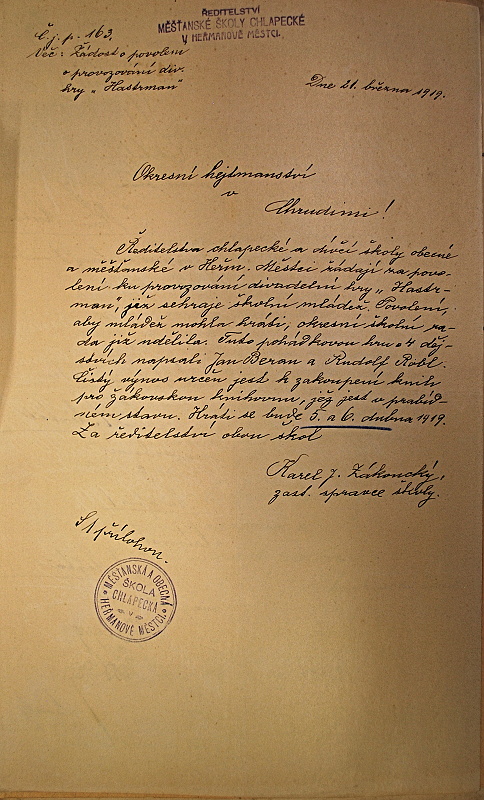 ŘEDITELSTVÍ
MĚŠŤANSKÉ ŠKOLY CHLAPECKÉ
V HEŘMANOVĚ MĚSTCI.
Č. j. p. 163.
Věc: Žádost o povolení
o provozování div.
hry „Hastrman"
Dne 21. března 1919.
Okresní hejtmanství
v
Chrudimi!
Ředitelstva chlapecké a dívčí školy obecné
a měšťanské v Heřm. Městci žádají za povo-
lení ku provozování divadelní hry „Hastr-
man", již sehraje školní mládež. Povolení,
aby mládež mohla hráti, okresní školní ra-
da již udělila. Tuto pohádkovou hru o 4 děj-
stvích napsali Jan Beran a Rudolf Robl.
Čistý výnos určen jest k zakoupení knih
pro žákovskou knihovnu, jež jest v prabíd-
ném stavu. Hráti se bude 5. a 6. dubna 1919.
Za ředitelství obou škol
Karel J. Zákoucký,
zast. správce školy.
S 1 přílohou.
MĚŠŤANSKÁ A OBECNÁ
ŠKOLA
CHLAPECKÁ
V
HEŘMANOVĚ MĚSTCI